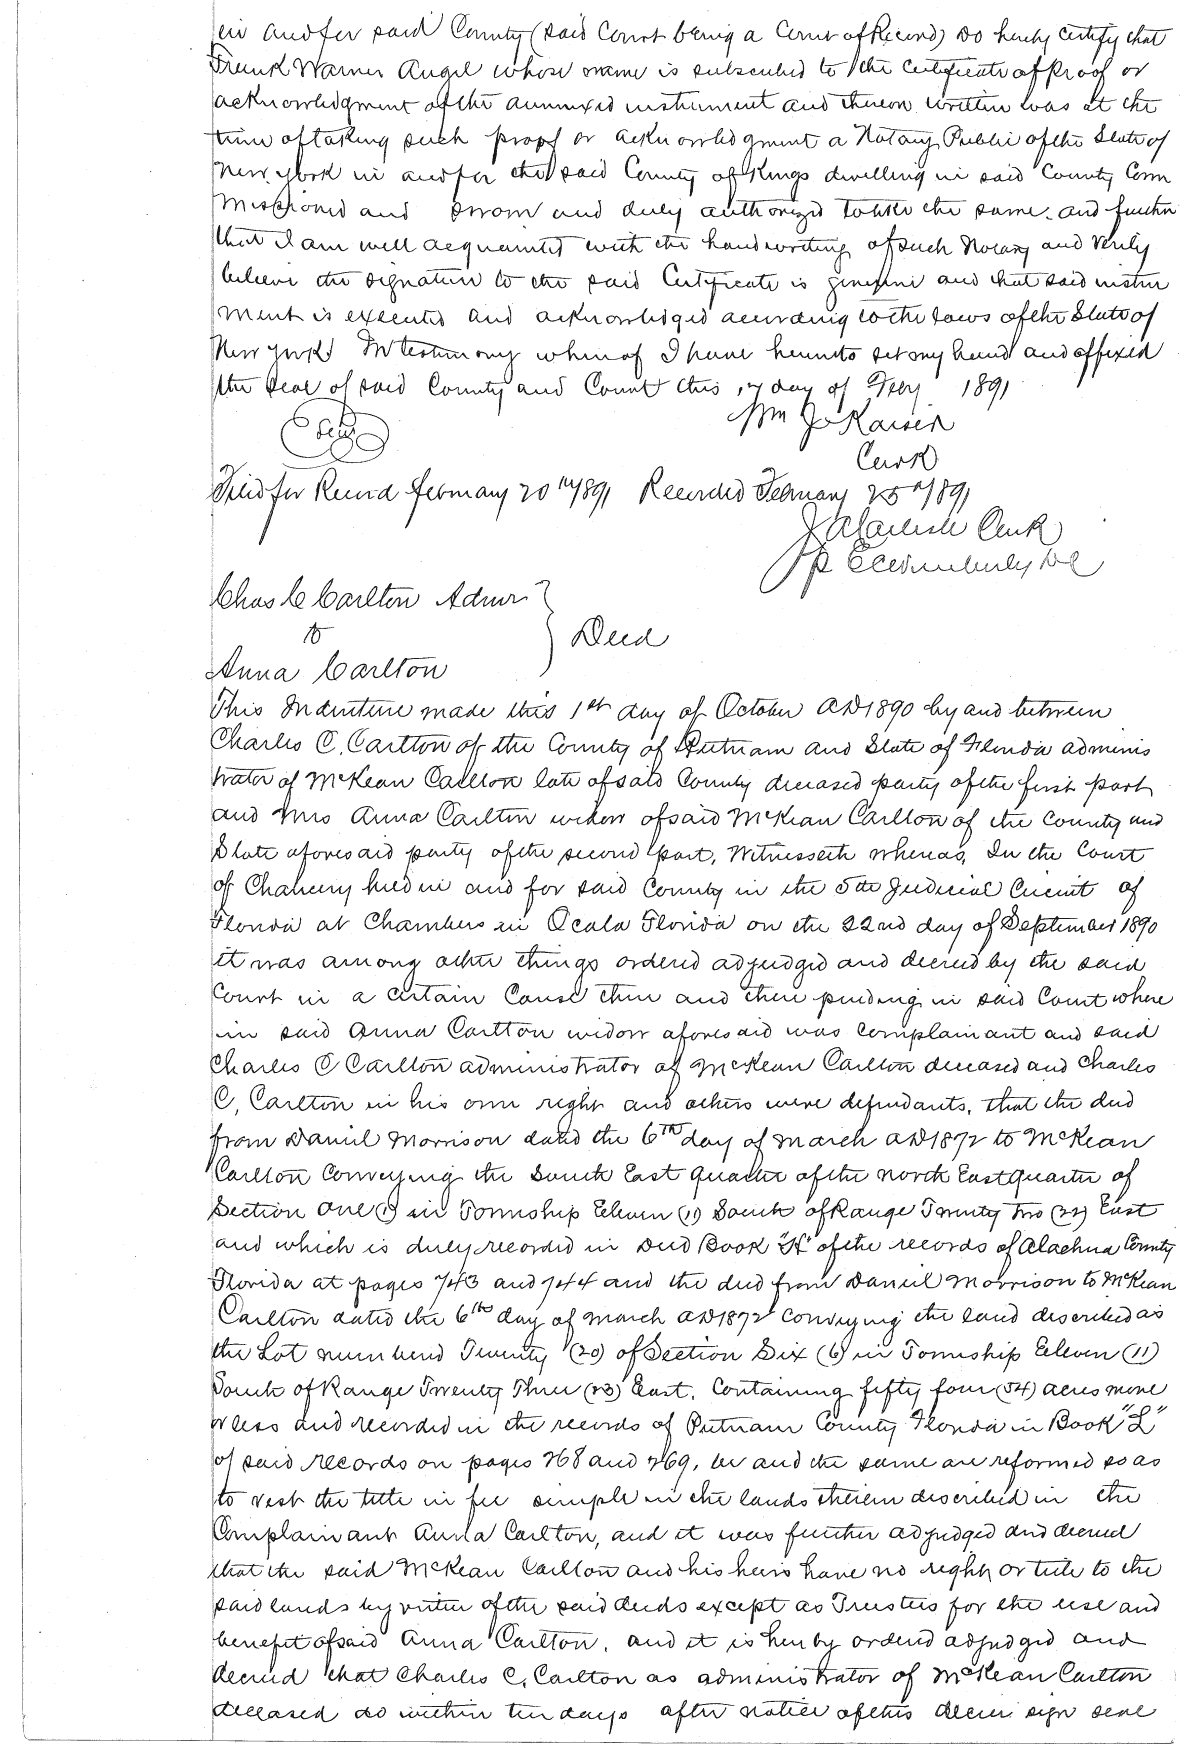 in and for said County (said Court being a Court of Record) Do hereby certify that
Frank Warner Angel whose name is subscribed to the Certificate of Proof or
acknowledgment of the annexed instrument and thereon written was at the
time of taking such proof or acknowledgment a Notary Public of the State of
New York in and for the said County of Kings dwelling in said County Com
missioned and sworn and duly authorized to take the same. and further
that I am well acquainted with the handwriting of such Notary and verily
believe the signature to the said Certificate is genuine and that said instru
ment is executed and acknowledged according to the laws of the State of
New York In testimony whereof I have hereunto set my hand and affixed
the seal of said County and Court this 17 day of Feby 1891
Seal
Wm J Kaiser
Clerk
Filed for Record February 20th 1891 Recorded February 25th 1891
J A Carlisle Clerk
p E C Wimberly DC
Chas C Carlton Admr
to
Deed
Anna Carlton
This Indenture made this 1st day of October AD 1890 by and between
Charles C. Carlton of the County of Putnam and State of Florida adminis
trator of McKean Carlton late of said County deceased party of the first part
and Mrs Anna Carlton widow of said McKean Carlton of the County and
State aforesaid party of the second part, Witnesseth whereas, In the Court
of Chancery held in and for said County in the 5th Judicial Circuit of
Florida at Chambers in Ocala Florida on the 22nd day of September 1890
it was among other things ordered adjudged and decreed by the said
Court in a certain Cause then and there pending in said Court where
in said Anna Carlton widow aforesaid was complainant and said
Charles C Carlton administrator of McKean Carlton deceased and Charles
C. Carlton in his own right and others were defendants, that the deed
from Daniel Morrison dated the 6th day of March AD 1872 to McKean
Carlton Conveying the South East Quarter of the North East Quarter of
Section One (1) in Township Eleven (11) South of Range Twenty two (22) East
and which is duly recorded in Deed Book "H" of the records of Alachua County
Florida at pages 743 and 744 and the deed from Daniel Morrison to McKean
Carlton dated the 6th day of March AD 1872 Conveying the land described as
the Lot numbered Twenty (20) of Section Six (6) in Township Eleven (11)
South of Range Twenty Three (23) East. Containing fifty four (54) acres more
or less and recorded in the records of Putnam County Florida in Book "L"
of said records on pages 268 and 269, be and the same are reformed so as
to vest the title in fee simple in the lands therein described in the
Complainant Anna Carlton, and it was further adjudged and decreed
that the said McKean Carlton and his heirs have no right or title to the
said lands by virtue of the said deeds except as Trustees for the use and
benefit of said Anna Carlton, and it is hereby ordered adjudged and
decreed that Charles C. Carlton as administrator of McKean Carlton
deceased do within ten days after notice of this decree sign seal